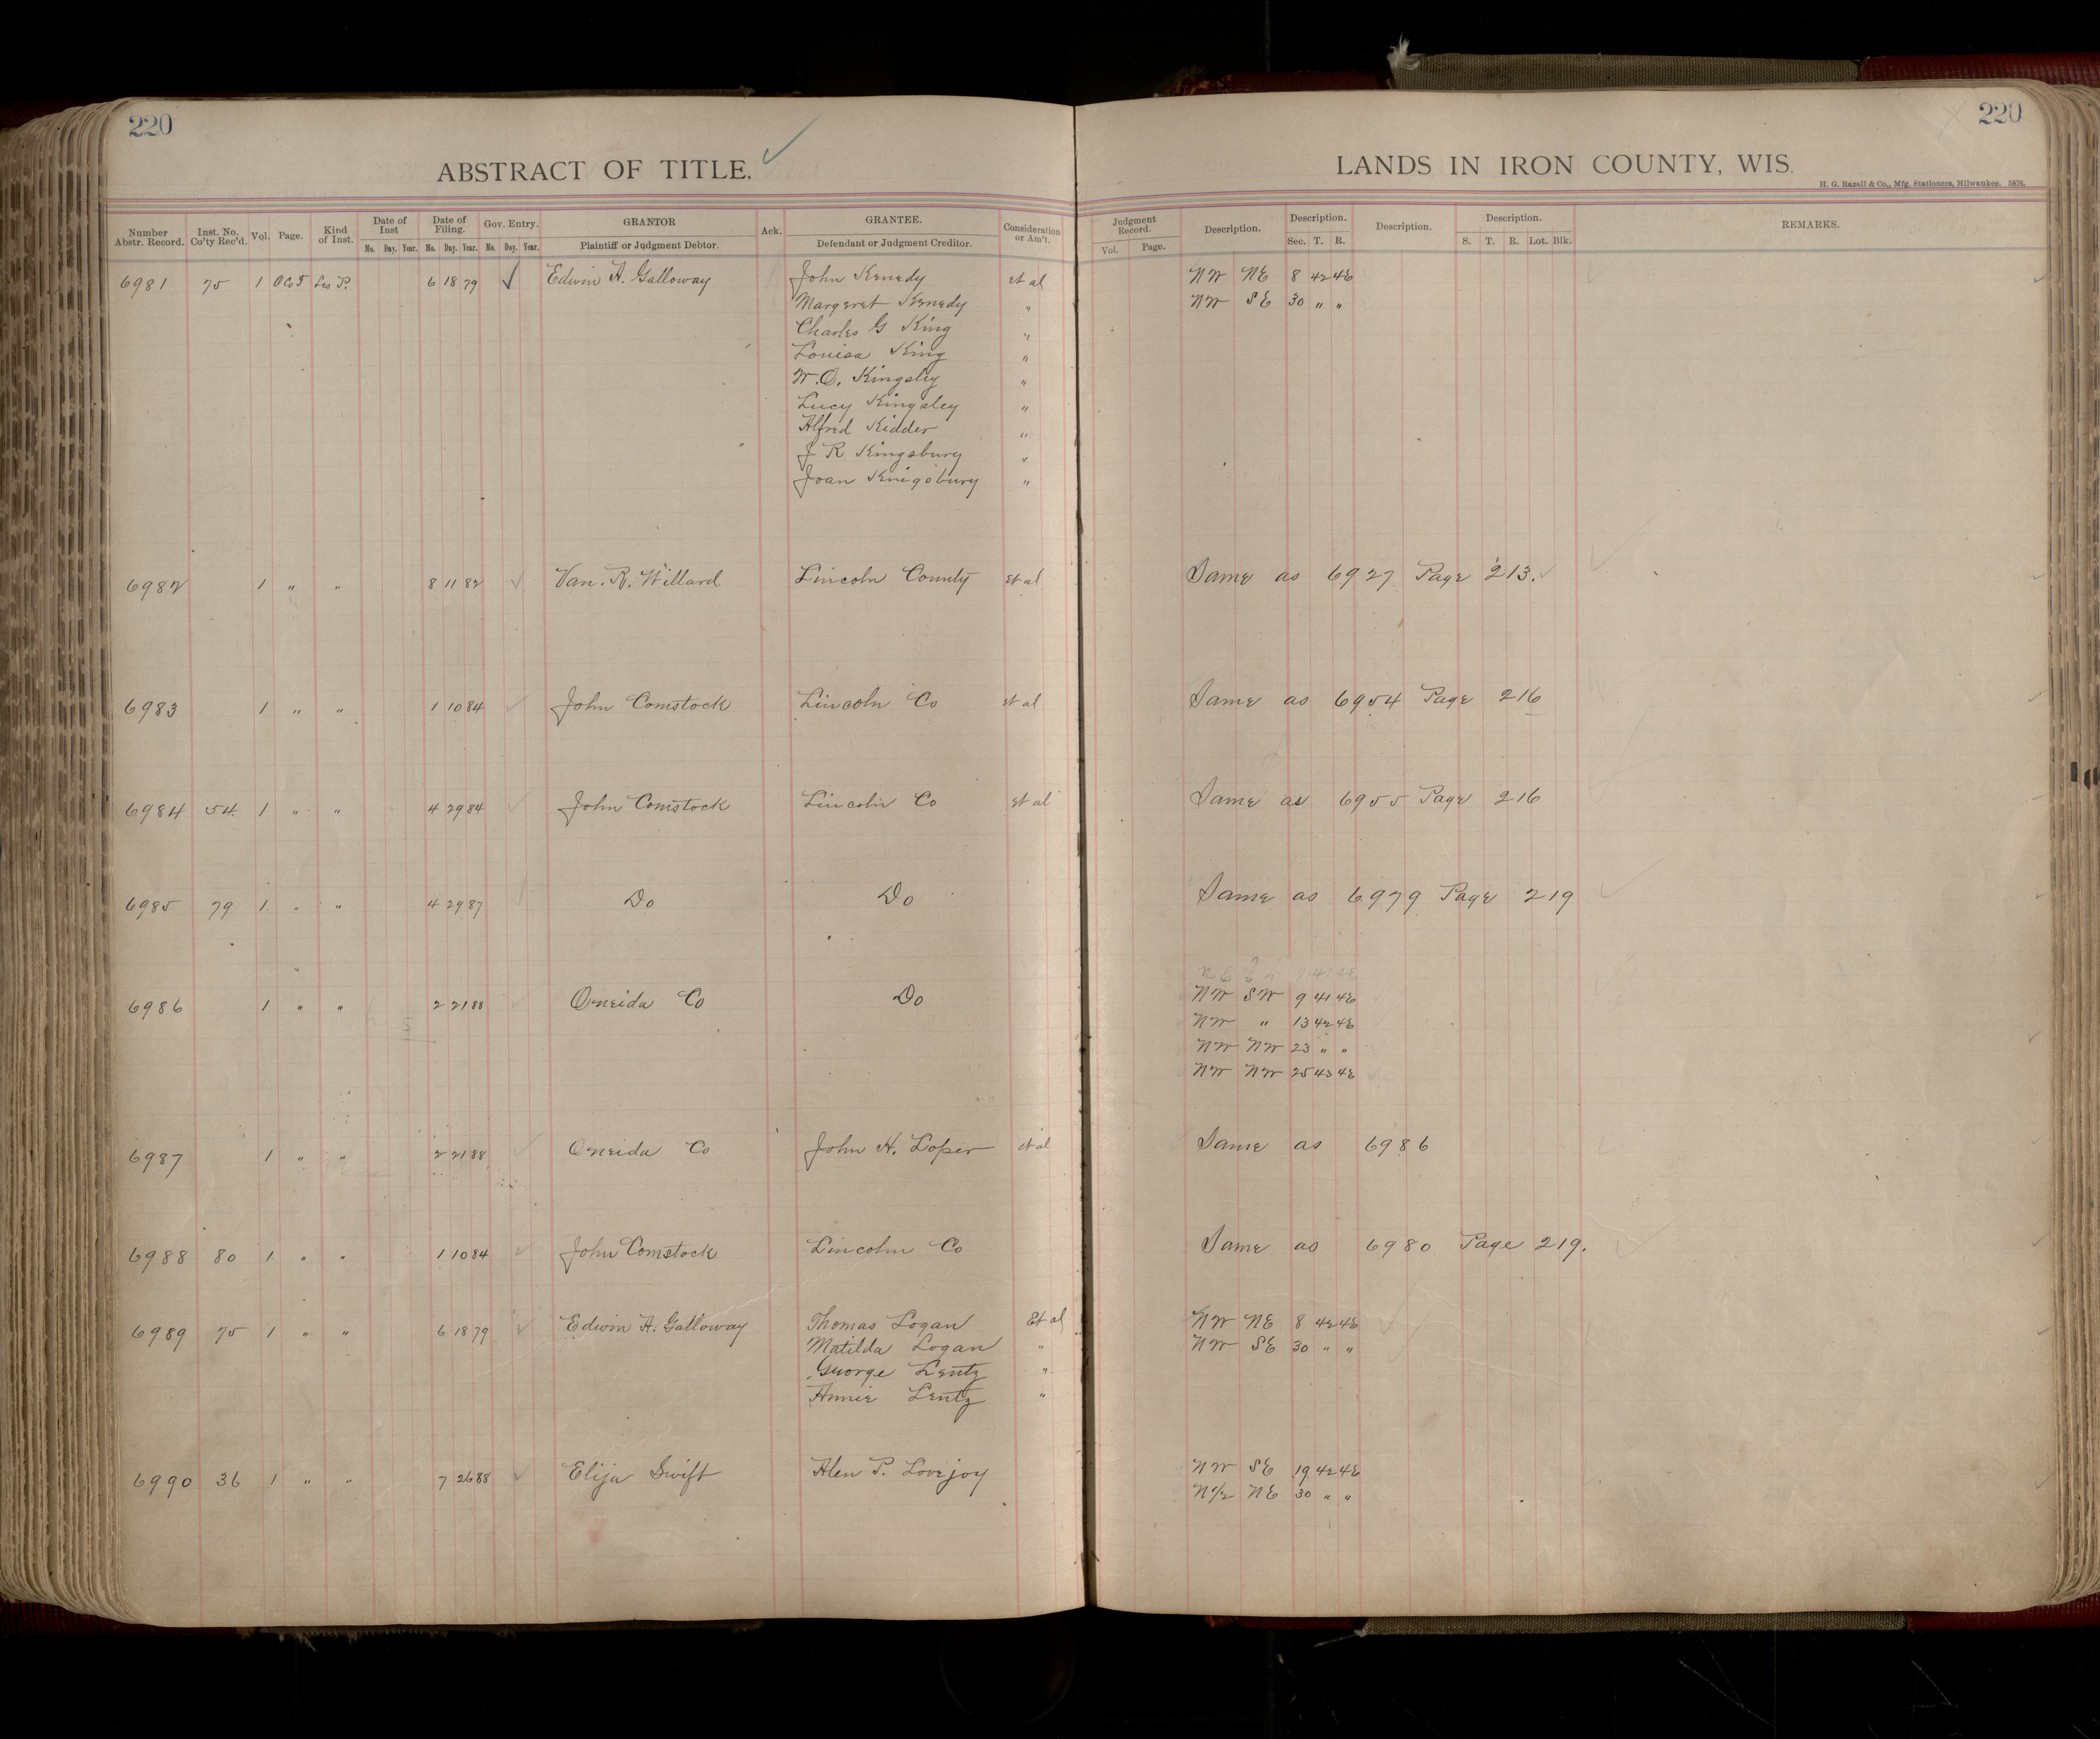 220
220
ABSTRACT OF TITLE.
LANDS IN IRON COUNTY, WIS.
H. G. Razall & Co., Mfg. Stationers, Milwaukee. 5876.
Number Abstr. Record. Inst. No. Co'ty Rec'd. Vol. Page. Kind of Inst. Date of Inst Mo. Day. Year. Date of Filing. Mo. Day. Year. Gov. Entry. Mo. Day. Year. GRANTOR Plaintiff or Judgment Debtor. Ack. GRANTEE. Defendant or Judgment Creditor. Consideration or Am't. Judgment Record. Vol. Page. Description. Description. Sec. T. R. Description. Description. S. T. R. Lot. Blk. REMARKS.
6981 75 1 Lis P. 6 18 79 Edwin H. Galloway John Kenedy et al NW NE 8 42 4E
Margeret Kenedy " NW SE 30 " "
Charles G King "
Louisa King "
W.O. Kingsley "
Lucy Kingsley "
Alfred Kidder "
J R Kingsbury "
Joan Knigsbury "
6982 1 " " 8 11 82 Van. R. Willard Lincoln County et al Same as 6927 Page 213.
6983 1 " " 1 10 84 John Comstock Lincoln Co et al Same as 6954 Page 216
6984 54. 1 " " 4 29 84 John Comstock Lincoln Co et al Same as 6955 Page 216
6985 79 1 " " 4 29 87 Do Do Same as 6979 Page 219
6986 1 " " 2 21 88 Oneida Co Do NW SW 9 41 4E
NW " 13 42 4E
NW NW 23 " "
NW NW 25 43 4E
6987 1 " " 2 21 88 Oneida Co John H. Loper et al Same as 6986
6988 80 1 " " 1 10 84 John Comstock Lincoln Co Same as 6980 Page 219.
6989 75 1 " " 6 18 79 Edwin H. Galloway Thomas Logan Et al NW NE 8 42 4E
Matilda Logan " NW SE 30 " "
George Lentz "
Annie Lentz "
6990 36 1 " " 7 26 88 Elija Swift Alen P. Lovejoy NW SE 19 42 4E
N1/2 NE 30 " "